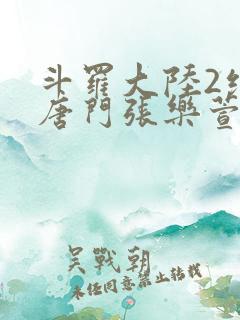 斗羅大陸2絕
唐門張樂萱
吴戰朝
未經同意禁止轉載